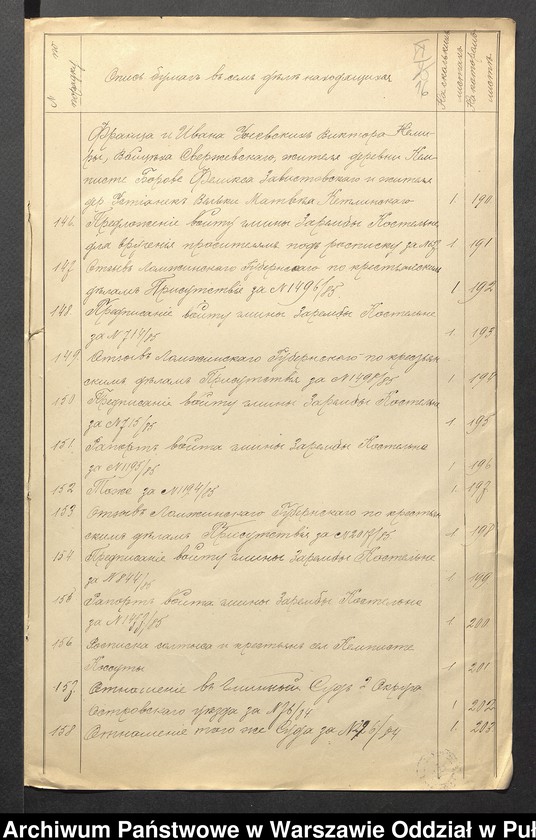 N по порядку
Опись бумагъ въ семъ дѣлѣ находящихся
На сколькихъ листахъ
В которомъ листѣ
Франца и Ивана Виктора
жителя деревни Кем-
писте Борове Феликса Завистовскаго и жителя
дер. Матвѣя 1. 190
146. Предложеніе войту гмины Зарембы Костельне
для врученія просителямъ подъ расписку за 1 191
147. Отзывъ Ломжинскаго Губернскаго по крестьянским
дѣламъ Присутствія за N 1496/85 1 192
148. Предписаніе войту гмины Зарембы Костельне
за N 714/85 1. 193
149. Отзывъ Ломжинскаго Губернскаго по крестьян-
скимъ дѣламъ Присутствія за N 1498/85 1. 194
150 Предписаніе войту гмины Зарембы Костельне
за N 715/85 1 195
151. Рапортъ войта гмины Зарембы Костельне
за N 1195/85 1 196
152 Тоже за N 1194/85 1. 197
153. Отзывъ Ломжинскаго Губернскаго по крестьян
скимъ дѣламъ Присутствія за N 2017/85 1 198
154 Предписаніе войту гмины Зарембы Костельне
за N 844/85 1 199
155 Рапортъ войта гмины Зарембы Костельне
за N 1457/85 1. 200
156 Росписка солтыса и крестьянъ сел. Кемписте
1 201
157. Отношеніе въ Гминный Судъ 2 Округа
Островскаго уѣзда за N 76/84 1 202
158 Отношеніе того же Суда за N 226/84 1. 203
Archiwum Państwowe w Warszawie Oddział w Puł